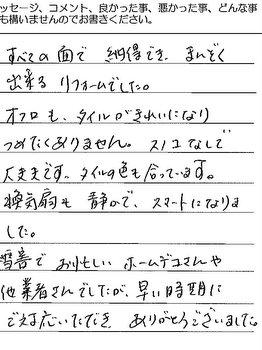 ッセージ、コメント、良かった事、悪かった事、どんな事
も構いませんのでお書きください。
すべての面で 納得でき、まんぞく
出来る リフォームでした。
オフロも、タイルがきれいになり
つめたくありません。スノコなしで
大丈夫です。タイルの色も合っています。
換気扇も 静かで、スマートになりま
した。
雪害で おいそがしい ホームデコさんや
他業者さんでしたが、早い時期に
ご対応いただき ありがとうございました。